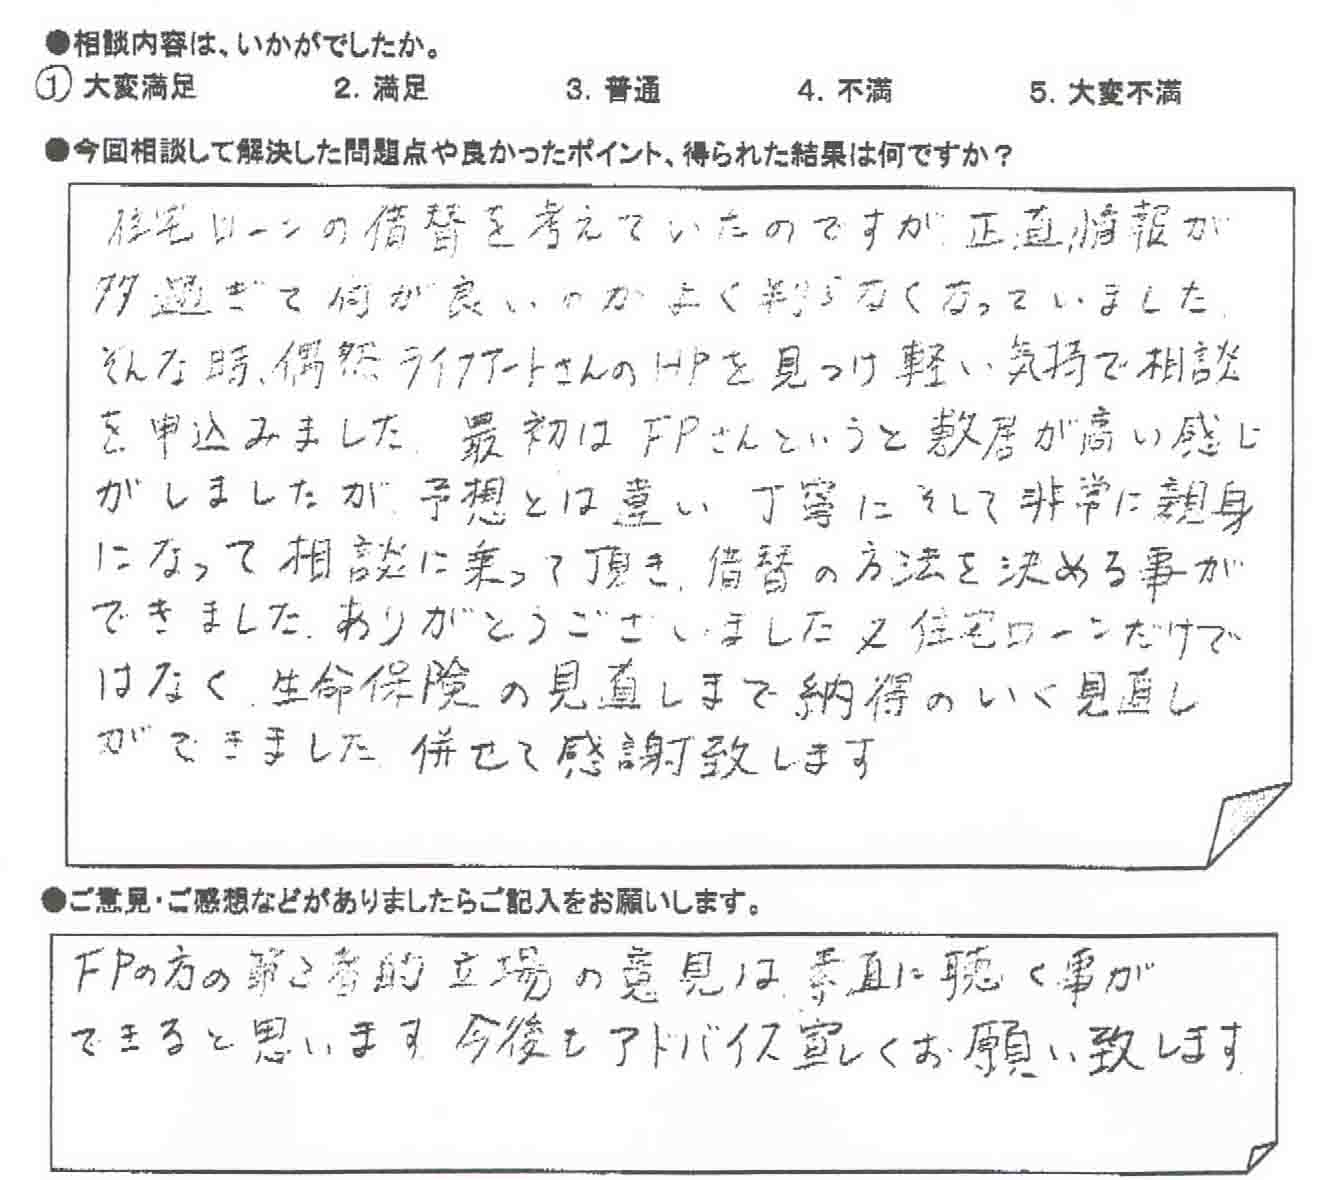 ●相談内容は、いかがでしたか。
① 大変満足 2. 満足 3. 普通 4. 不満 5. 大変不満
●今回相談して解決した問題点や良かったポイント、得られた結果は何ですか？
住宅ローンの借替を考えていたのですが、正直、情報が
多過ぎて何が良いのかよく判らなくなっていました。
そんな時、偶然ライフアートさんのHPを見つけ軽い気持で相談
を申込みました。最初はFPさんというと敷居が高い感じ
がしましたが、予想とは違い丁寧にそして非常に親身
になって相談に乗って頂き、借替の方法を決める事が
できました。ありがとうございました又住宅ローンだけで
はなく、生命保険の見直しまで納得のいく見直し
ができました。併せて感謝致します
●ご意見・ご感想などがありましたらご記入をお願いします。
FPの方の第三者的立場の意見は、素直に聴く事が
できると思います。今後もアドバイス宜しくお願い致します